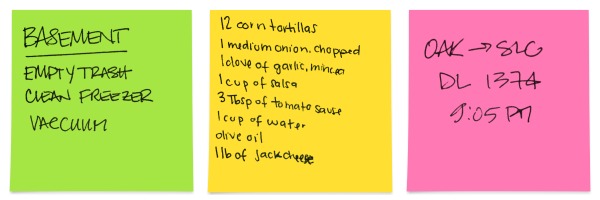 BASEMENT
EMPTY TRASH
CLEAN FREEZER
VACCUUM
12 corn tortillas
1 medium onion, chopped
1 clove of garlic, minced
1 cup of salsa
3 Tbsp of tomato sauce
1 cup of water
olive oil
1 lb of jack cheese
OAK → SLC
DL 1374
9:05 PM